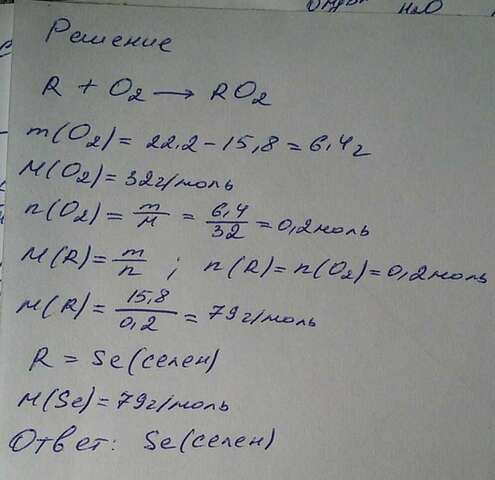 H₂O
Решение
R + O₂ → RO₂
m(O₂) = 22,2 - 15,8 = 6,4 г
M(O₂) = 32 г/моль
n(O₂) = m/M = 6,4/32 = 0,2 моль
M(R) = m/n ; n(R) = n(O₂) = 0,2 моль
M(R) = 15,8/0,2 = 79 г/моль
R = Se (селен)
M(Se) = 79 г/моль
Ответ: Se (селен)